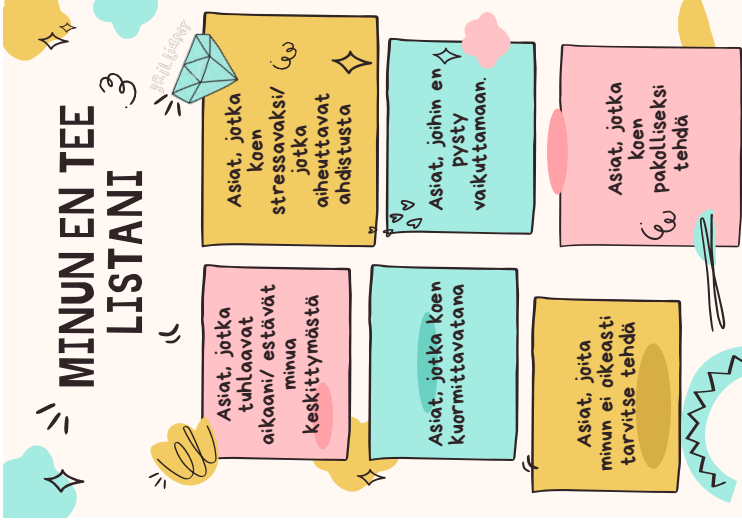 MINUN EN TEE
LISTANI
BRILLIANT
Asiat, jotka
tuhlaavat
aikaani/ estävät
minua
keskittymästä
Asiat, jotka
koen
stressavaksi/
jotka
aiheuttavat
ahdistusta
Asiat, jotka koen
kuormittavatana
Asiat, joihin en
pysty
vaikuttamaan.
Asiat, joita
minun ei oikeasti
tarvitse tehdä
Asiat, jotka
koen
pakolliseksi
tehdä